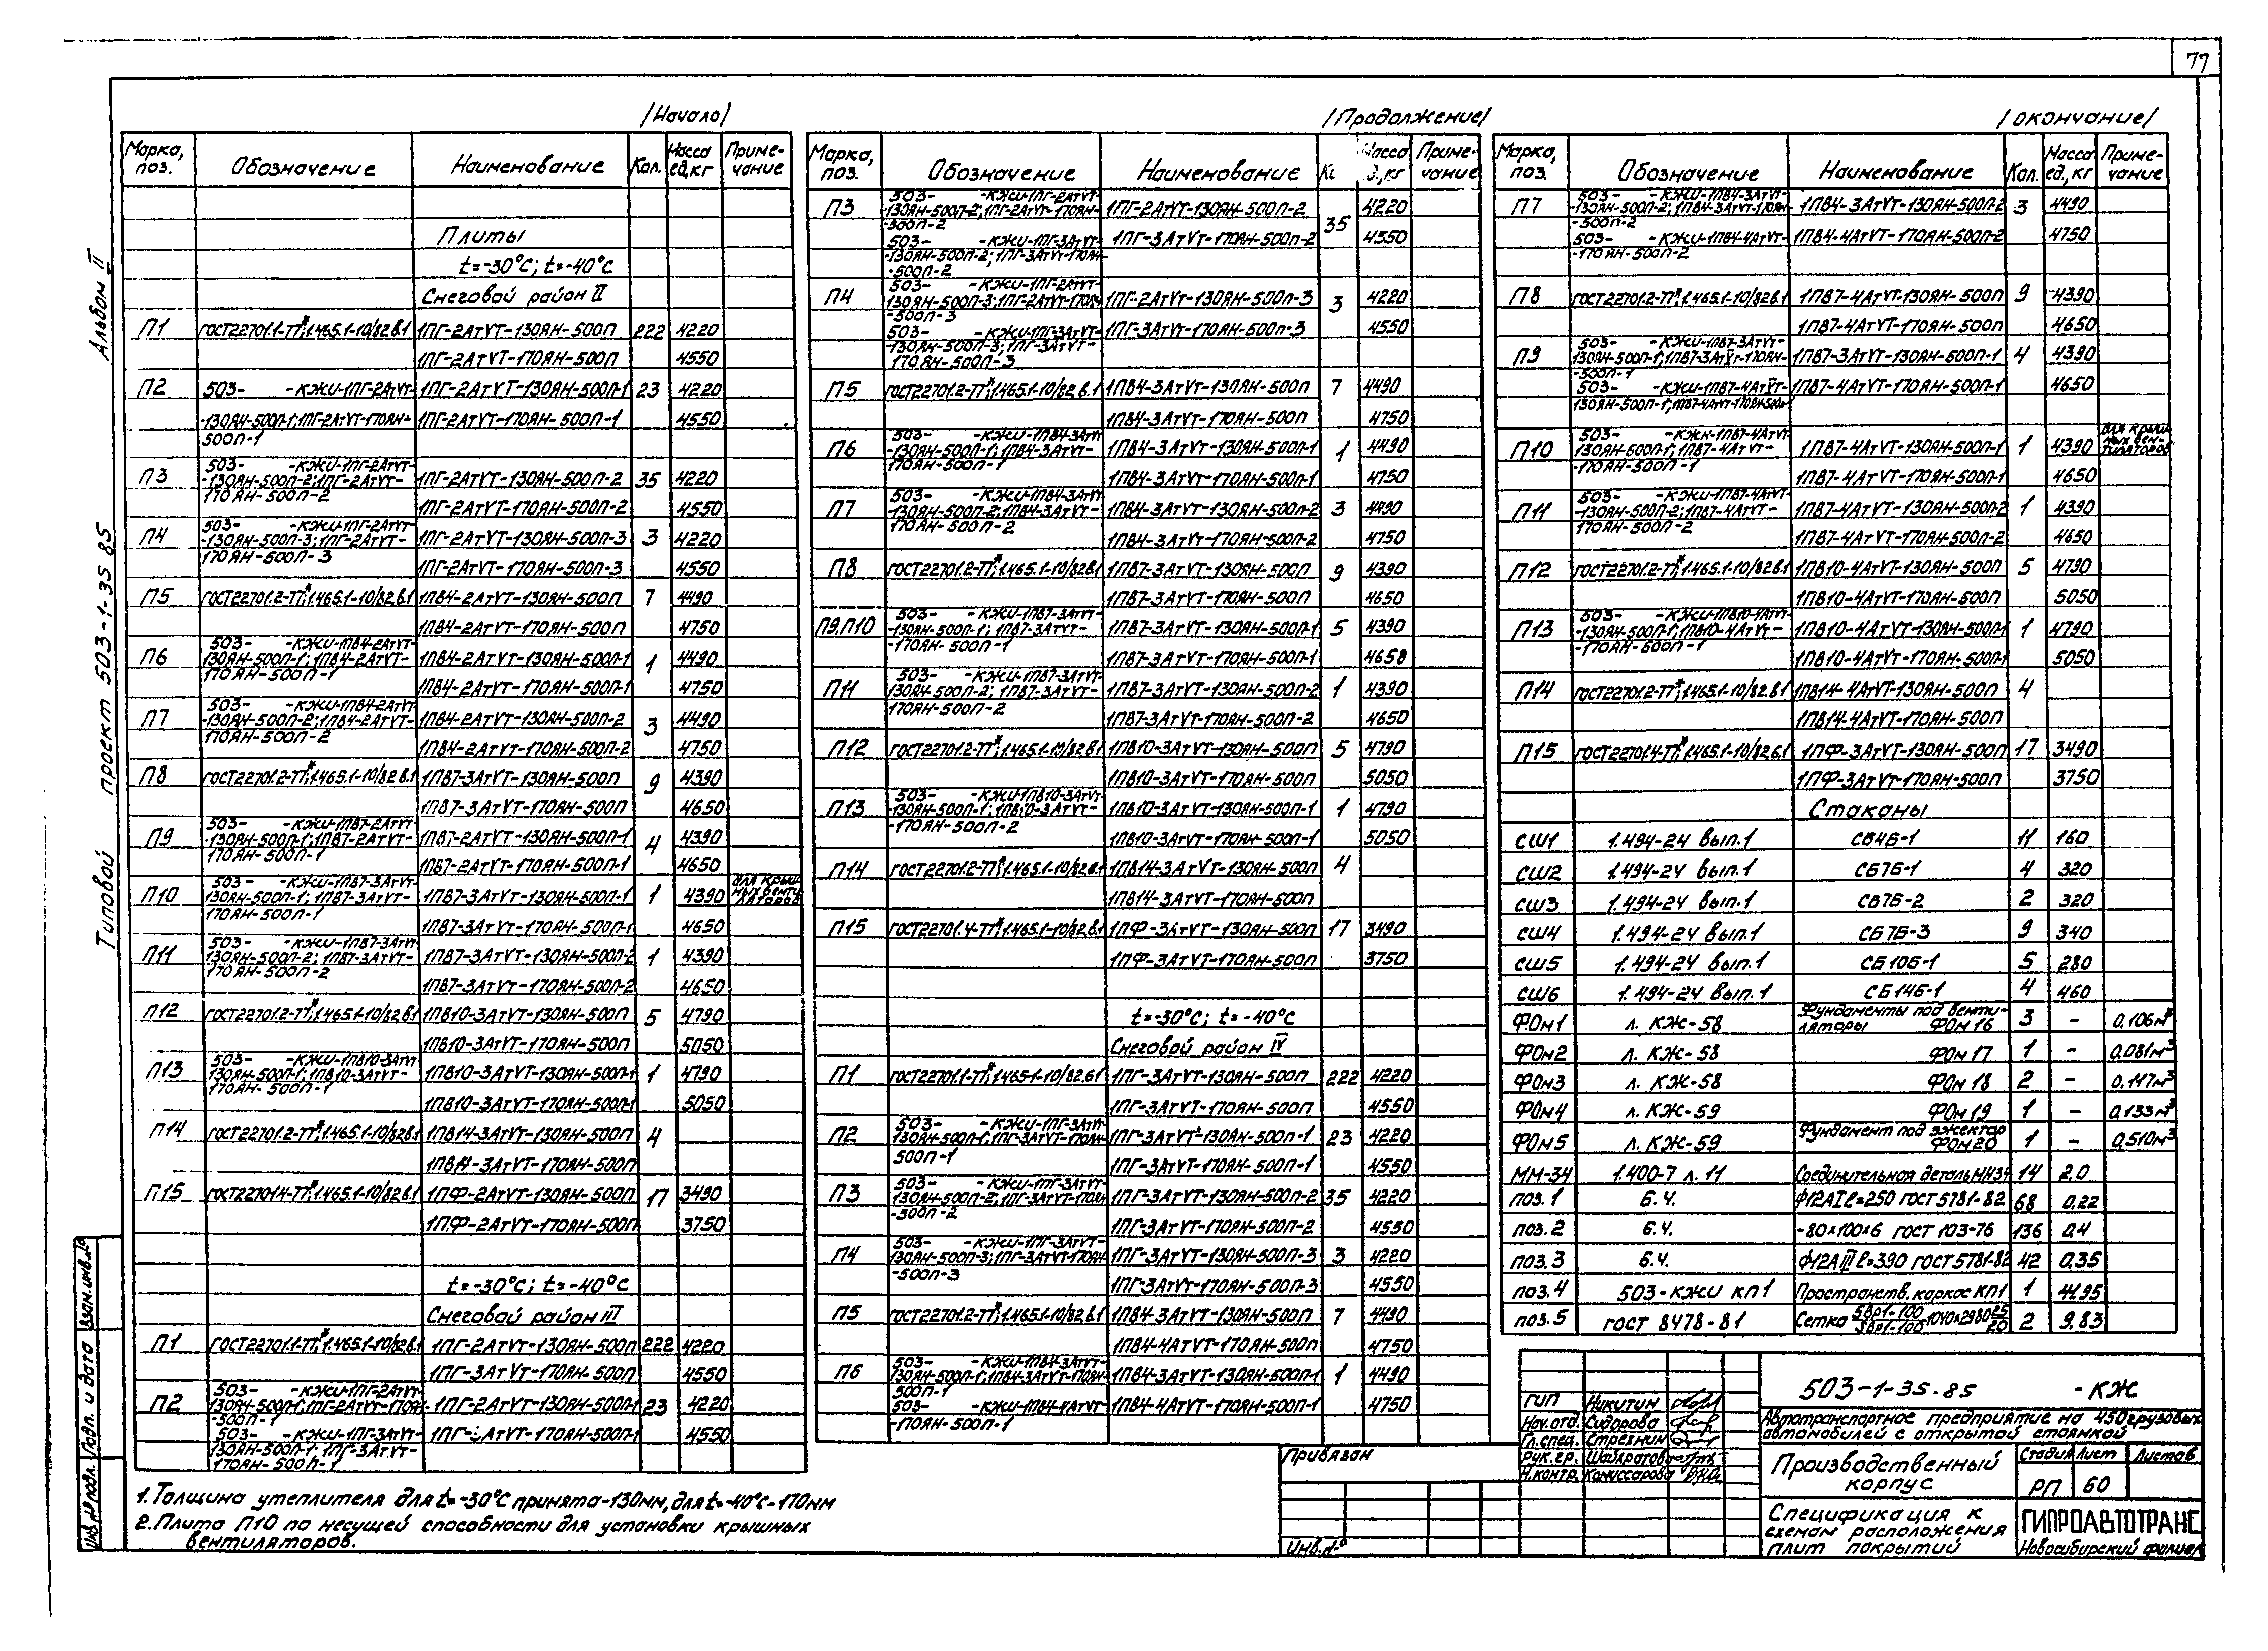 77
Альбом II
Типовой проект 503-1-35 85
/Начало/
Марка, поз. Обозначение Наименование Кол. Масса ед,кг Примечание
Плиты
t=-30°С; t=-40°С
Снеговой район II
П1 ГОСТ22701.1-77*;1.465.1-10/82в.1 1ПГ-2АтVТ-130ЯН-500П 222 4220
1ПГ-2АтVТ-170ЯН-500П 4550
П2 503- -КЖИ-1ПГ-2АтVТ- 1ПГ-2АтVТ-130ЯН-500П-1 23 4220
-130ЯН-500П-1;1ПГ-2АтVТ-170ЯН- 1ПГ-2АтVТ-170ЯН-500П-1 4550
500П-1
П3 503- -КЖИ-1ПГ-2АтVТ-130ЯН-500П-2;1ПГ-2АтVТ-170ЯН-500П-2 1ПГ-2АтVТ-130ЯН-500П-2 35 4220
1ПГ-2АтVТ-170ЯН-500П-2 4550
П4 503- -КЖИ-1ПГ-2АтVТ-130ЯН-500П-3;1ПГ-2АтVТ-170ЯН-500П-3 1ПГ-2АтVТ-130ЯН-500П-3 3 4220
1ПГ-2АтVТ-170ЯН-500П-3 4550
П5 ГОСТ22701.2-77*;1.465.1-10/82в.1 1ПВ4-2АтVТ-130ЯН-500П 7 4490
1ПВ4-2АтVТ-170ЯН-500П 4750
П6 503- -КЖИ-1ПВ4-2АтVТ-130ЯН-500П-1;1ПВ4-2АтVТ-170ЯН-500П-1 1ПВ4-2АтVТ-130ЯН-500П-1 1 4490
1ПВ4-2АтVТ-170ЯН-500П-1 4750
П7 503- -КЖИ-1ПВ4-2АтVТ-130ЯН-500П-2;1ПВ4-2АтVТ-170ЯН-500П-2 1ПВ4-2АтVТ-130ЯН-500П-2 3 4490
1ПВ4-2АтVТ-170ЯН-500П-2 4750
П8 ГОСТ22701.2-77*;1.465.1-10/82в.1 1ПВ7-3АтVТ-130ЯН-500П 9 4390
1ПВ7-3АтVТ-170ЯН-500П 4650
П9 503- -КЖИ-1ПВ7-2АтVТ-130ЯН-500П-1;1ПВ7-2АтVТ-170ЯН-500П-1 1ПВ7-2АтVТ-130ЯН-500П-1 4 4390
1ПВ7-2АтVТ-170ЯН-500П-1 4650
П10 503- -КЖИ-1ПВ7-3АтVТ-130ЯН-500П-1;1ПВ7-3АтVТ-170ЯН-500П-1 1ПВ7-3АтVТ-130ЯН-500П-1 1 4390 для крышных вентиляторов
1ПВ7-3АтVТ-170ЯН-500П-1 4650
П11 503- -КЖИ-1ПВ7-3АтVТ-130ЯН-500П-2;1ПВ7-3АтVТ-170ЯН-500П-2 1ПВ7-3АтVТ-130ЯН-500П-2 1 4390
1ПВ7-3АтVТ-170ЯН-500П-2 4650
П12 ГОСТ22701.2-77*;1.465.1-10/82в.1 1ПВ10-3АтVТ-130ЯН-500П 5 4790
1ПВ10-3АтVТ-170ЯН-500П 5050
П13 503- -КЖИ-1ПВ10-3АтVТ-130ЯН-500П-1;1ПВ10-3АтVТ-170ЯН-500П-1 1ПВ10-3АтVТ-130ЯН-500П-1 1 4790
1ПВ10-3АтVТ-170ЯН-500П-1 5050
П14 ГОСТ22701.2-77*;1.465.1-10/82в.1 1ПВ14-3АтVТ-130ЯН-500П 4
1ПВ14-3АтVТ-170ЯН-500П
П15 ГОСТ22701.4-77*;1.465.1-10/82в.1 1ПФ-2АтVТ-130ЯН-500П 17 3490
1ПФ-2АтVТ-170ЯН-500П 3750
t=-30°С; t=-40°С
Снеговой район III
П1 ГОСТ22701.1-77*;1.465.1-10/82в.1 1ПГ-2АтVТ-130ЯН-500П 222 4220
1ПГ-3АтVТ-170ЯН-500П 4550
П2 503- -КЖИ-1ПГ-2АтVТ-130ЯН-500П-1;1ПГ-2АтVТ-170ЯН-500П-1 1ПГ-2АтVТ-130ЯН-500П-1 23 4220
503- -КЖИ-1ПГ-3АтVТ-130ЯН-500П-1;1ПГ-3АтVТ-170ЯН-500П-1 1ПГ-3АтVТ-170ЯН-500П-1 4550
/Продолжение/
Марка, поз. Обозначение Наименование Масса ед,кг Примечание
П3 503- -КЖИ-1ПГ-2АтVТ-130ЯН-500П-2;1ПГ-2АтVТ-170ЯН-500П-2 1ПГ-2АтVТ-130ЯН-500П-2 35 4220
503- -КЖИ-1ПГ-3АтVТ-130ЯН-500П-2;1ПГ-3АтVТ-170ЯН-500П-2 1ПГ-3АтVТ-170ЯН-500П-2 4550
П4 503- -КЖИ-1ПГ-2АтVТ-130ЯН-500П-3;1ПГ-2АтVТ-170ЯН-500П-3 1ПГ-2АтVТ-130ЯН-500П-3 3 4220
503- -КЖИ-1ПГ-3АтVТ-130ЯН-500П-3;1ПГ-3АтVТ-170ЯН-500П-3 1ПГ-3АтVТ-170ЯН-500П-3 4550
П5 ГОСТ22701.2-77*;1.465.1-10/82в.1 1ПВ4-3АтVТ-130ЯН-500П 7 4490
1ПВ4-3АтVТ-170ЯН-500П 4750
П6 503- -КЖИ-1ПВ4-3АтVТ-130ЯН-500П-1;1ПВ4-3АтVТ-170ЯН-500П-1 1ПВ4-3АтVТ-130ЯН-500П-1 1 4490
1ПВ4-3АтVТ-170ЯН-500П-1 4750
П7 503- -КЖИ-1ПВ4-3АтVТ-130ЯН-500П-2;1ПВ4-3АтVТ-170ЯН-500П-2 1ПВ4-3АтVТ-130ЯН-500П-2 3 4490
1ПВ4-3АтVТ-170ЯН-500П-2 4750
П8 ГОСТ22701.2-77*;1.465.1-10/82в.1 1ПВ7-3АтVТ-130ЯН-500П 9 4390
1ПВ7-3АтVТ-170ЯН-500П 4650
П9,П10 503- -КЖИ-1ПВ7-3АтVТ-130ЯН-500П-1;1ПВ7-3АтVТ-170ЯН-500П-1 1ПВ7-3АтVТ-130ЯН-500П-1 5 4390
1ПВ7-3АтVТ-170ЯН-500П-1 4658
П11 503- -КЖИ-1ПВ7-3АтVТ-130ЯН-500П-2;1ПВ7-3АтVТ-170ЯН-500П-2 1ПВ7-3АтVТ-130ЯН-500П-2 1 4390
1ПВ7-3АтVТ-170ЯН-500П-2 4650
П12 ГОСТ22701.2-77*;1.465.1-10/82в.1 1ПВ10-3АтVТ-130ЯН-500П 5 4790
1ПВ10-3АтVТ-170ЯН-500П 5050
П13 503- -КЖИ-1ПВ10-3АтVТ-130ЯН-500П-1;1ПВ10-3АтVТ-170ЯН-500П-2 1ПВ10-3АтVТ-130ЯН-500П-1 1 4790
1ПВ10-3АтVТ-170ЯН-500П-1 5050
П14 ГОСТ22701.2-77*;1.465.1-10/82в.1 1ПВ14-3АтVТ-130ЯН-500П 4
1ПВ14-3АтVТ-170ЯН-500П
П15 ГОСТ22701.4-77*;1.465.1-10/82в.1 1ПФ-3АтVТ-130ЯН-500П 17 3490
1ПФ-3АтVТ-170ЯН-500П 3750
t=-30°С; t=-40°С
Снеговой район IV
П1 ГОСТ22701.1-77*;1.465-1-10/82.в1 1ПГ-3АтVТ-130ЯН-500П 222 4220
1ПГ-3АтVТ-170ЯН-500П 4550
П2 503- -КЖИ-1ПГ-3АтVТ-130ЯН-500П-1;1ПГ-3АтVТ-170ЯН-500П-1 1ПГ-3АтVТ-130ЯН-500П-1 23 4220
1ПГ-3АтVТ-170ЯН-500П-1 4550
П3 503- -КЖИ-1ПГ-3АтVТ-130ЯН-500П-2;1ПГ-3АтVТ-170ЯН-500П-2 1ПГ-3АтVТ-130ЯН-500П-2 35 4220
1ПГ-3АтVТ-170ЯН-500П-2 4550
П4 503- -КЖИ-1ПГ-3АтVТ-130ЯН-500П-3;1ПГ-3АтVТ-170ЯН-500П-3 1ПГ-3АтVТ-130ЯН-500П-3 3 4220
1ПГ-3АтVТ-170ЯН-500П-3 4550
П5 ГОСТ22701.2-77*;1.465.1-10/82в.1 1ПВ4-3АтVТ-130ЯН-500П 7 4490
1ПВ4-4АтVТ-170ЯН-500П 4750
П6 503- -КЖИ-1ПВ4-3АтVТ-130ЯН-500П-1;1ПВ4-3АтVТ-170ЯН-500П-1 1ПВ4-3АтVТ-130ЯН-500П-1 1 4490
503- -КЖИ-1ПВ4-4АтVТ-170ЯН-500П-1 1ПВ4-4АтVТ-170ЯН-500П-1 4750
/окончание/
Марка, поз. Обозначение Наименование Кол. Масса ед,кг Примечание
П7 503- -КЖИ-1ПВ4-3АтVТ-130ЯН-500П-2;1ПВ4-3АтVТ-170ЯН-500П-2 1ПВ4-3АтVТ-130ЯН-500П-2 3 4490
503- -КЖИ-1ПВ4-4АтVТ-170ЯН-500П-2 1ПВ4-4АтVТ-170ЯН-500П-2 4750
П8 ГОСТ22701.2-77*;1.465.1-10/82в.1 1ПВ7-4АтVТ-130ЯН-500П 9 4390
1ПВ7-4АтVТ-170ЯН-500П 4650
П9 503- -КЖИ-1ПВ7-3АтVТ-130ЯН-500П-1;1ПВ7-3АтVТ-170ЯН-500П-1 1ПВ7-3АтVТ-130ЯН-500П-1 4 4390
503- -КЖИ-1ПВ7-4АтVТ-130ЯН-500П-1;1ПВ7-4АтVТ-170ЯН-500П 1ПВ7-4АтVТ-170ЯН-500П-1 4650
П10 503- -КЖИ-1ПВ7-4АтVТ-130ЯН-500П-1;1ПВ7-4АтVТ-170ЯН-500П-1 1ПВ7-4АтVТ-130ЯН-500П-1 1 4390 для крышных вентиляторов
1ПВ7-4АтVТ-170ЯН-500П-1 4650
П11 503- -КЖИ-1ПВ7-4АтVТ-130ЯН-500П-2;1ПВ7-4АтVТ-170ЯН-500П-2 1ПВ7-4АтVТ-130ЯН-500П-2 1 4390
1ПВ7-4АтVТ-170ЯН-500П-2 4650
П12 ГОСТ22701.2-77*;1.465.1-10/82в.1 1ПВ10-4АтVТ-130ЯН-500П 5 4790
1ПВ10-4АтVТ-170ЯН-500П 5050
П13 503- -КЖИ-1ПВ10-4АтVТ-130ЯН-500П-1;1ПВ10-4АтVТ-170ЯН-500П-1 1ПВ10-4АтVТ-130ЯН-500П-1 1 4790
1ПВ10-4АтVТ-170ЯН-500П-1 5050
П14 ГОСТ22701.2-77*;1.465.1-10/82в.1 1ПВ14-4АтVТ-130ЯН-500П 4
1ПВ14-4АтVТ-170ЯН-500П
П15 ГОСТ22701.4-77*;1.465.1-10/82в.1 1ПФ-3АтVТ-130ЯН-500П 17 3490
1ПФ-3АтVТ-170ЯН-500П 3750
Стаканы
СШ1 1.494-24 вып.1 СБ4Б-1 11 160
СШ2 1.494-24 вып.1 СБ7Б-1 4 320
СШ3 1.494-24 вып.1 СБ7Б-2 2 320
СШ4 1.494-24 вып.1 СБ7Б-3 9 340
СШ5 1.494-24 вып.1 СБ10Б-1 5 280
СШ6 1.494-24 вып.1 СБ14Б-1 4 460
ФОм1 л. КЖ-58 Фундаменты под вентиляторы ФОм16 3 - 0,106м³
ФОм2 л. КЖ-58 ФОм17 1 - 0,081м³
ФОм3 л. КЖ-58 ФОм18 2 - 0,147м³
ФОм4 л. КЖ-59 ФОм19 1 - 0,133м³
ФОм5 л. КЖ-59 Фундамент под эжектор ФОм20 1 - 0,510м³
ММ-34 1.400-7 л.11 Соединительная деталь ММ34 14 2,0
поз.1 б.ч. ф12АI ℓ=250 ГОСТ 5781-82 68 0,22
поз.2 б.ч. -80×100×6 ГОСТ 103-76 136 0,4
поз.3 б.ч. ф12АIII ℓ=390 ГОСТ 5781-82 42 0,35
поз.4 503-КЖИ КП1 Пространств. каркас КП1 1 44,95
поз.5 ГОСТ 8478-81 Сетка 5Вр1-100/5Вр1-100 1040×2980 25/20 2 9.83
1. Толщина утеплителя для t=-30°С принята-130мм, для t=-40°С-170мм
2. Плита П10 по несущей способности для установки крышных
вентиляторов.
Инв.№ подл. Подп. и дата Взам.инв.№
Привязан
Инв.№
ГИП Никитин
Нач.отд. Сидорова
Гл.спец. Стрехнин
Рук.гр.
Н.контр. Комиссарова
503-1-35.85 -КЖ
Автотранспортное предприятие на 450 грузовых
автомобилей с открытой стоянкой
Производственный
корпус
Стадия Лист Листов
РП 60
Спецификация к
схемам расположения
плит покрытий
ГИПРОАВТОТРАНС
Новосибирский филиал